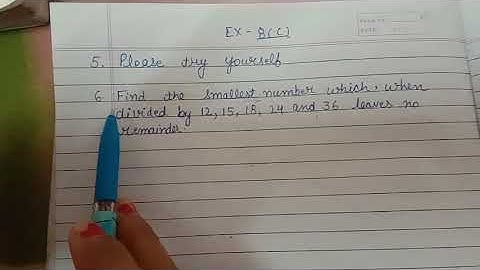 EX - 8(C)
5. Please try yourself
6 Find the smallest number which, when
divided by 12, 15, 18, 24 and 36 leaves no
remainder.